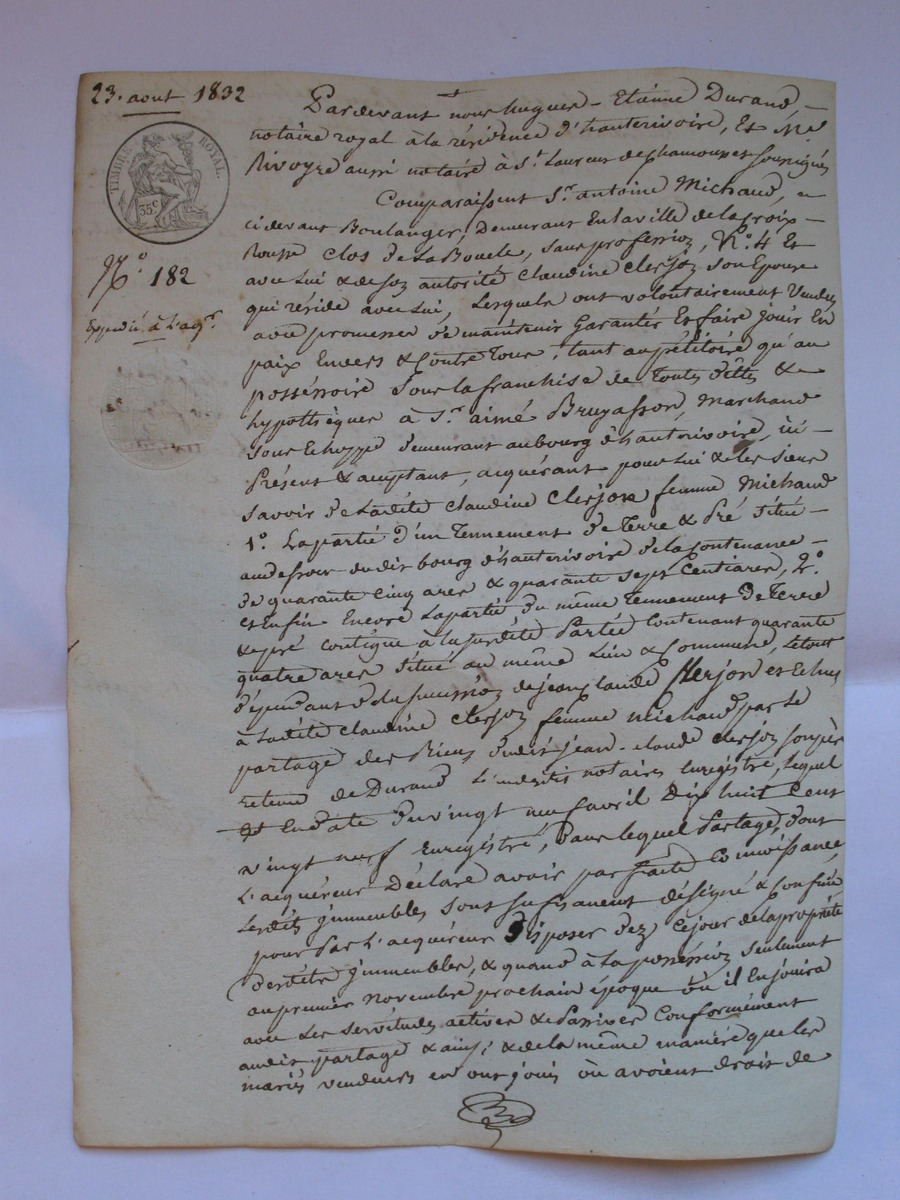 23. aout 1832
TIMBRE ROYAL.
35 c
N.° 182
Expédié à L'aq.r
Pardevant nous hugues - Etiénne Durand -
notaire royal à la résidence d'hauterivoire, Et M.e
Rivoyre aussi notaire à S.t Laurent de chamousset soussignés
Comparaissent S.r antoine Michaud,
ci devant Boulanger, Demeurant En la ville de la croix -
Rousse Clos de La Boucle, sans profession, N.° 4 Et
avec Lui & de son autorité Claudine Clerjon son Epouse
qui réside avec Lui, Lesquels ont volontairement Vendu
avec promesse de maintenir Garantir Et faire jouir En
paix Envers & Contre Tous, tant au pétitoire qu'au
possessoire Sous la franchise de toutes dettes &
hypothèques à S.r aimé Bruyasson, Marchand
demeurant au bourg d'hauterivoire, ici -
Présent & acceptant, acquérant pour Lui & les siens
savoir de Ladite Claudine Clerjon femme Michaud
1.° La partie d'un Tennement de Terre & Pré Situé -
au dessous du dit bourg d'hauterivoire de la Contenance -
de quarante cinq ares & quarante sept Centiares, 2.°
et Enfin Encore La partie du même Tennement de Terre
& pré contigue à la susdite Partie Contenant quarante
quatre ares Situé au même Lieu & Commune, Le tout
dépendant de la succession de jean claude Clerjon et Echus
à Ladite Claudine Clerjon femme Michaud par le
partage des Biens dudit jean - claude Clerjon son père
retenu de Durand L'un desdits notaires Enregistré, lequel
En Date du vingt neuf avril Dix huit Cent
vingt neuf Enregistré, Dans lequel Partage, dont
L'acquéreur Déclare avoir parfaite Connoissance,
Lesdits jmmeubles sont suffisament désigné & Confiné
pour Par L'acquéreur Disposer dez Cejour de la propriété
Desdits jmmeubles, & quand à La possession seulement
au premier Novembre prochain époque où il En jouira
avec Les servitudes actives & Passives Conformément
audit partage & ainsi, & de la même manière que les
mariés vendeurs en ont joui ou avoient droit de